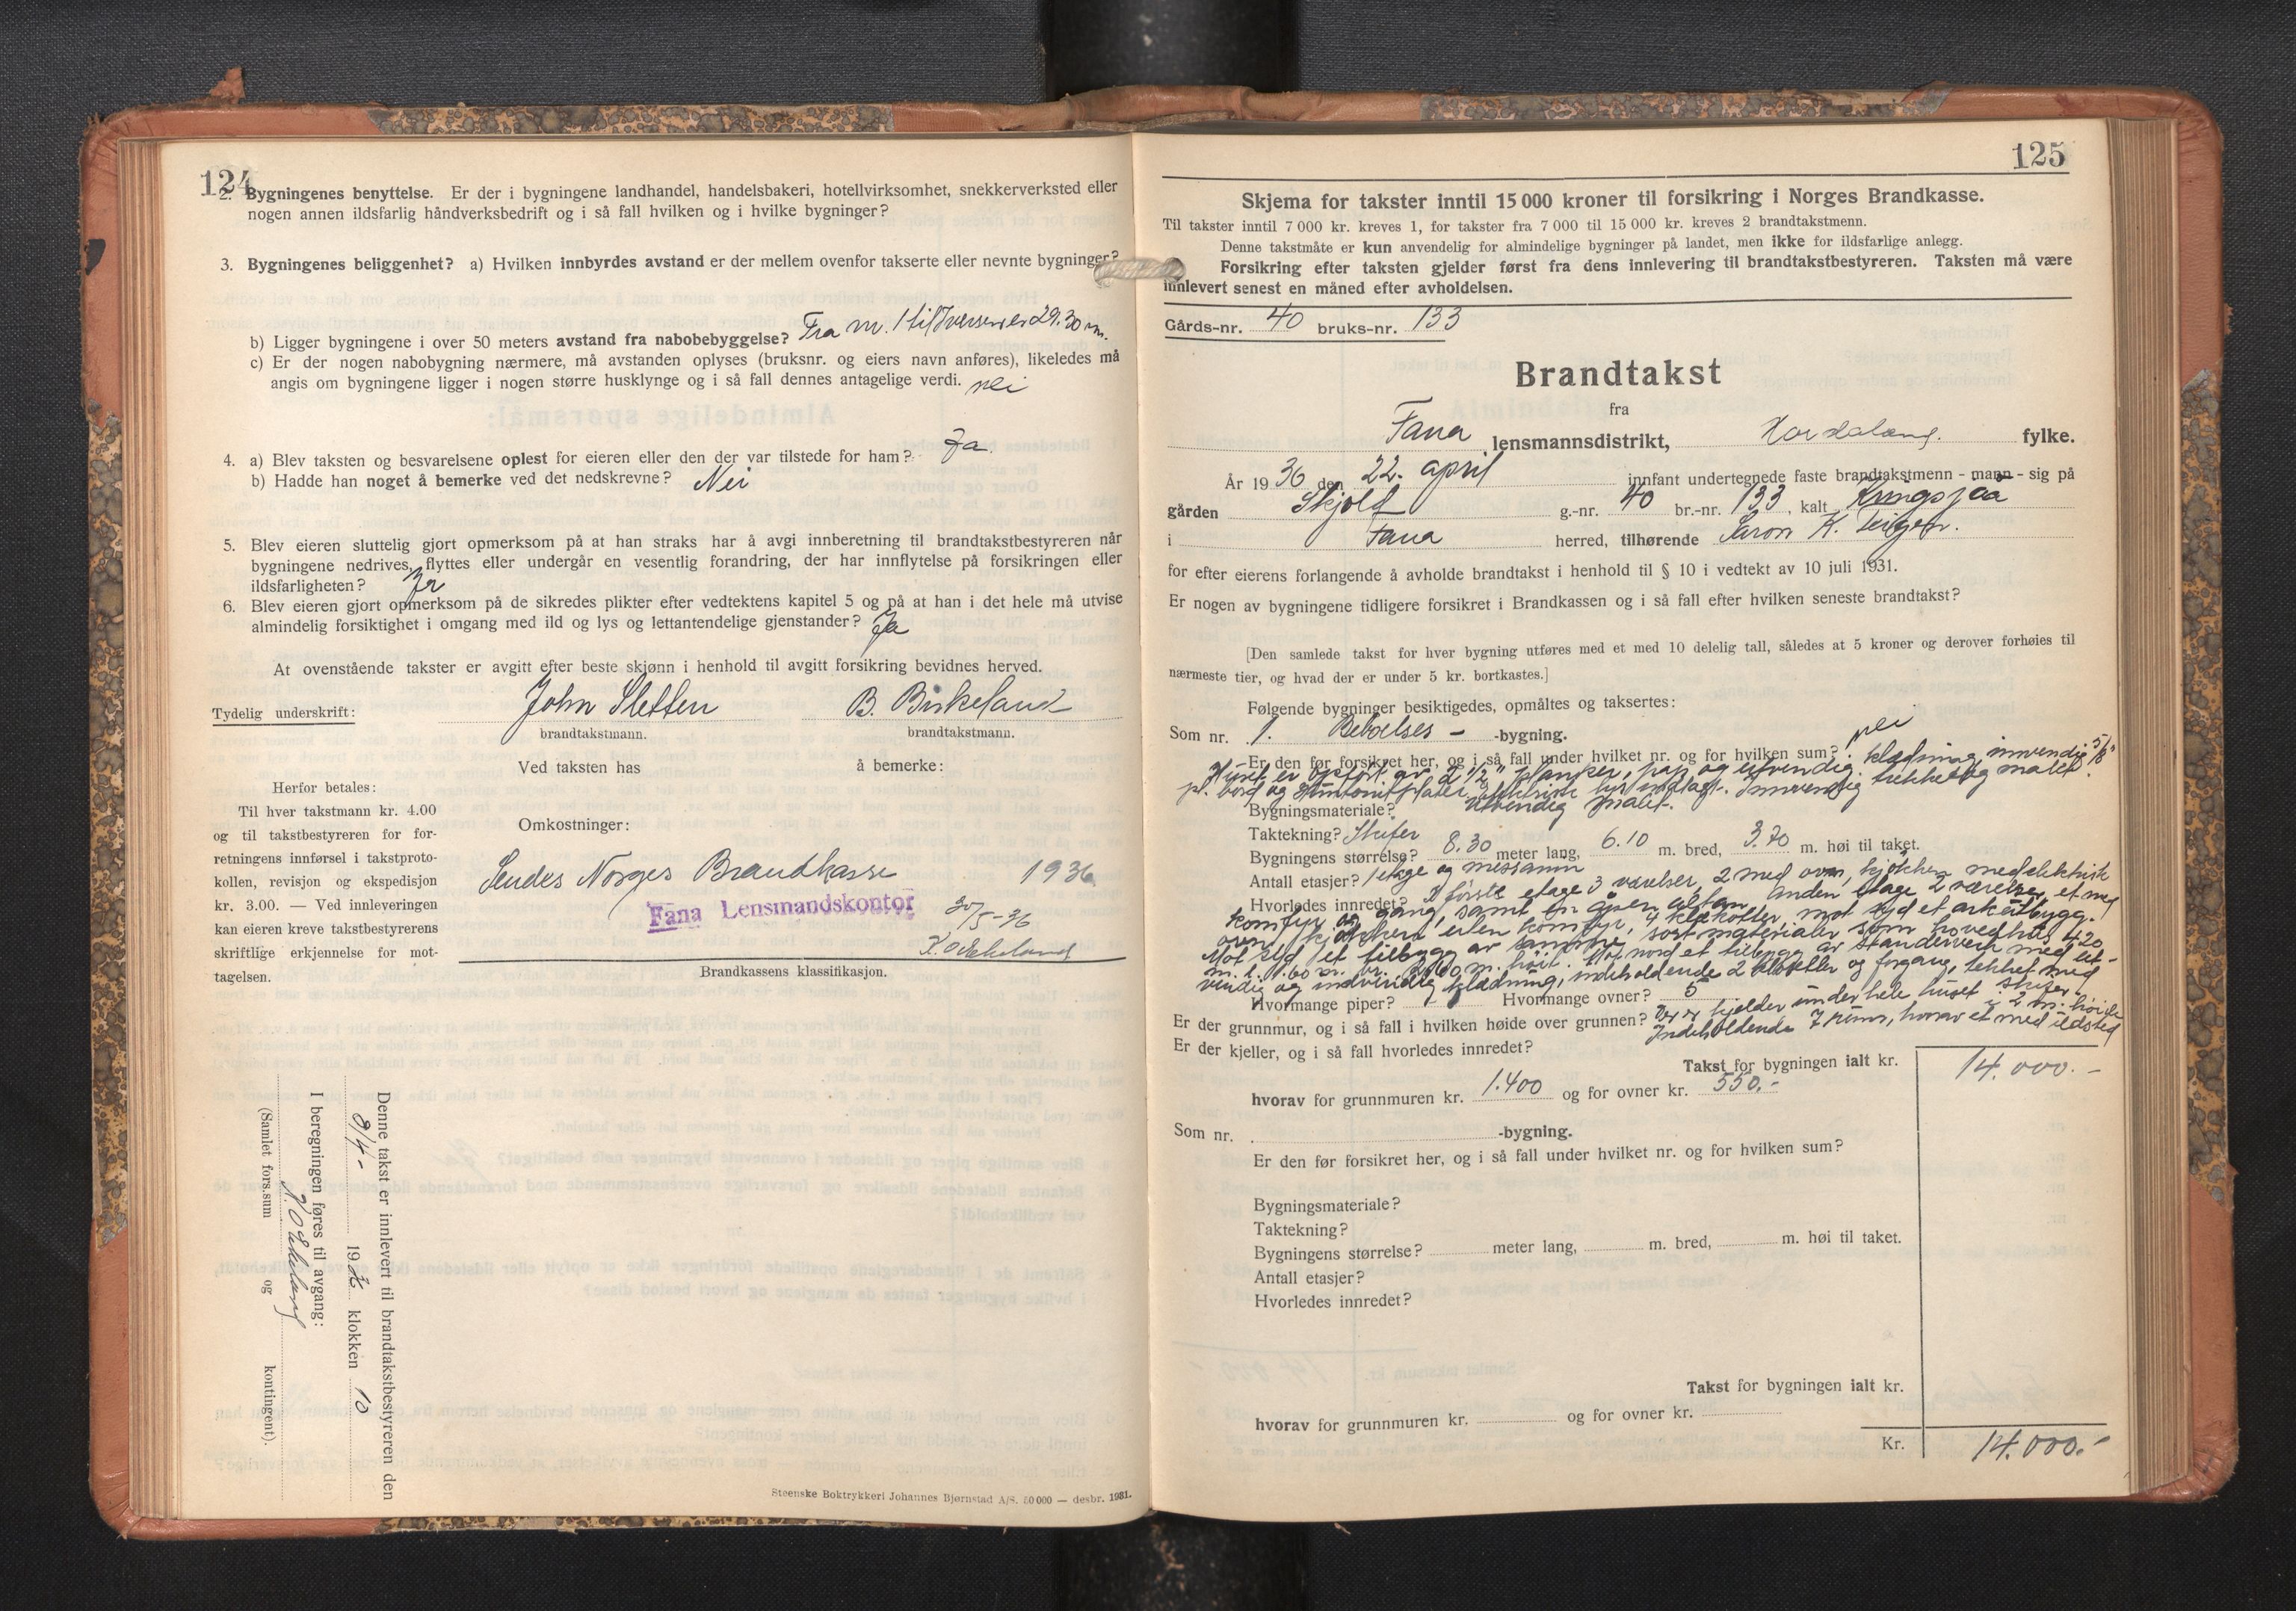 124
2. Bygningenes benyttelse. Er der i bygningene landhandel, handelsbakeri, hotellvirksomhet, snekkerverksted eller
nogen annen ildsfarlig håndverksbedrift og i så fall hvilken og i hvilke bygninger?
3. Bygningenes beliggenhet? a) Hvilken innbyrdes avstand er der mellem ovenfor takserte eller nevnte bygninger?
b) Ligger bygningene i over 50 meters avstand fra nabobebyggelse? Fra nr. 1 til Iversen er 29.30 m.
c) Er der nogen nabobygning nærmere, må avstanden oplyses (bruksnr. og eiers navn anføres), likeledes må
angis om bygningene ligger i nogen større husklynge og i så fall dennes antagelige verdi. nei
4. a) Blev taksten og besvarelsene oplest for eieren eller den der var tilstede for ham? Ja.
b) Hadde han noget å bemerke ved det nedskrevne? Nei
5. Blev eieren sluttelig gjort opmerksom på at han straks har å avgi innberetning til brandtakstbestyreren når
bygningene nedrives, flyttes eller undergår en vesentlig forandring, der har innflytelse på forsikringen eller
ildsfarligheten? Ja
6. Blev eieren gjort opmerksom på de sikredes plikter efter vedtektens kapitel 5 og på at han i det hele må utvise
almindelig forsiktighet i omgang med ild og lys og lettantendelige gjenstander? Ja
At ovenstående takster er avgitt efter beste skjønn i henhold til avgitt forsikring bevidnes herved.
Tydelig underskrift: John Sletten B. Birkeland
brandtakstmann. brandtakstmann.
Ved taksten has å bemerke:
Herfor betales:
Til hver takstmann kr. 4.00
og til takstbestyreren for for-
retningens innførsel i takstproto-
kollen, revisjon og ekspedisjon
kr. 3.00. — Ved innleveringen
kan eieren kreve takstbestyrerens
skriftlige erkjennelse for mot-
tagelsen.
Omkostninger:
Sendes Norges Brandkasse 1936
Fana Lensmandskontor 30/5-36
Brandkassens klassifikasjon.
Denne takst er innlevert til brandtakstbestyreren den
19 klokken 10
I beregningen føres til avgang:
(Samlet fors.sum og kontingent).
Steenske Boktrykkeri Johannes Bjørnstad A/S. 50 000 — desbr. 1931.
125
Skjema for takster inntil 15 000 kroner til forsikring i Norges Brandkasse.
Til takster inntil 7 000 kr. kreves 1, for takster fra 7 000 til 15 000 kr. kreves 2 brandtakstmenn.
Denne takstmåte er kun anvendelig for almindelige bygninger på landet, men ikke for ildsfarlige anlegg.
Forsikring efter taksten gjelder først fra dens innlevering til brandtakstbestyreren. Taksten må være
innlevert senest en måned efter avholdelsen.
Gårds-nr. 40 bruks-nr. 133
Brandtakst
fra
Fana lensmannsdistrikt, Hordaland. fylke.
År 1936 den 22. april innfant undertegnede faste brandtakstmenn - mann - sig på
gården Skjold g.-nr. 40 br.-nr. 133, kalt Kringsjaa
i Fana herred, tilhørende K. Teigen.
for efter eierens forlangende å avholde brandtakst i henhold til § 10 i vedtekt av 10 juli 1931.
Er nogen av bygningene tidligere forsikret i Brandkassen og i så fall efter hvilken seneste brandtakst?
[Den samlede takst for hver bygning utføres med et med 10 delelig tall, således at 5 kroner og derover forhøies til
nærmeste tier, og hvad der er under 5 kr. bortkastes.]
Følgende bygninger besiktigedes, opmåltes og taksertes:
Som nr. 1. Beboelses - -bygning.
Er den før forsikret her, og i så fall under hvilket nr. og for hvilken sum? nei
Huset er opført av 2 1/2" planker, pap og utvendig klædning, innvendig 5/8"
pl. bord og Huntonitplater, elektrisk lys indlagt. Innvendig trukket og malet.
Bygningsmateriale? Utvendig malet.
Taktekning? Skifer
Bygningens størrelse? 8.30 meter lang, 6.10 m. bred, 3.70 m. høi til taket.
Antall etasjer? 1 etage og messanin
Hvorledes innredet? I første etage 3 værelser, 2 med ovn, kjøkken med elektrisk
komfyr og gang, samt en aapen altan. Anden etage 2 værelser, et med
ovn, kjøkken uten komfyr, 4 klækotter, mot syd et arkutbygg.
Mot syd et tilbygg av samme sort materialer som hovedhus, 4.20
m. l. 1.60 m. br. 2.60 m. høit. Mot nord et tilbygg av standerverk med ut-
vendig og indvendig klædning, indeholdende 2 kloseter og forgang, tekket med
skifer.
Hvormange piper? 1 Hvormange ovner? 5
Er der grunnmur, og i så fall i hvilken høide over grunnen? Der er kjelder under hele huset 2 m. høide
Er der kjeller, og i så fall hvorledes innredet? Indeholdende 7 rum, hvorav et med ildsted
Takst for bygningen ialt kr. 14.000.-
hvorav for grunnmuren kr. 1.400 og for ovner kr. 550.-
Som nr. -bygning.
Er den før forsikret her, og i så fall under hvilket nr. og for hvilken sum?
Bygningsmateriale?
Taktekning?
Bygningens størrelse? meter lang, m. bred, m. høi til taket.
Antall etasjer?
Hvorledes innredet?
Takst for bygningen ialt kr.
hvorav for grunnmuren kr. og for ovner kr.
Kr. 14.000.-